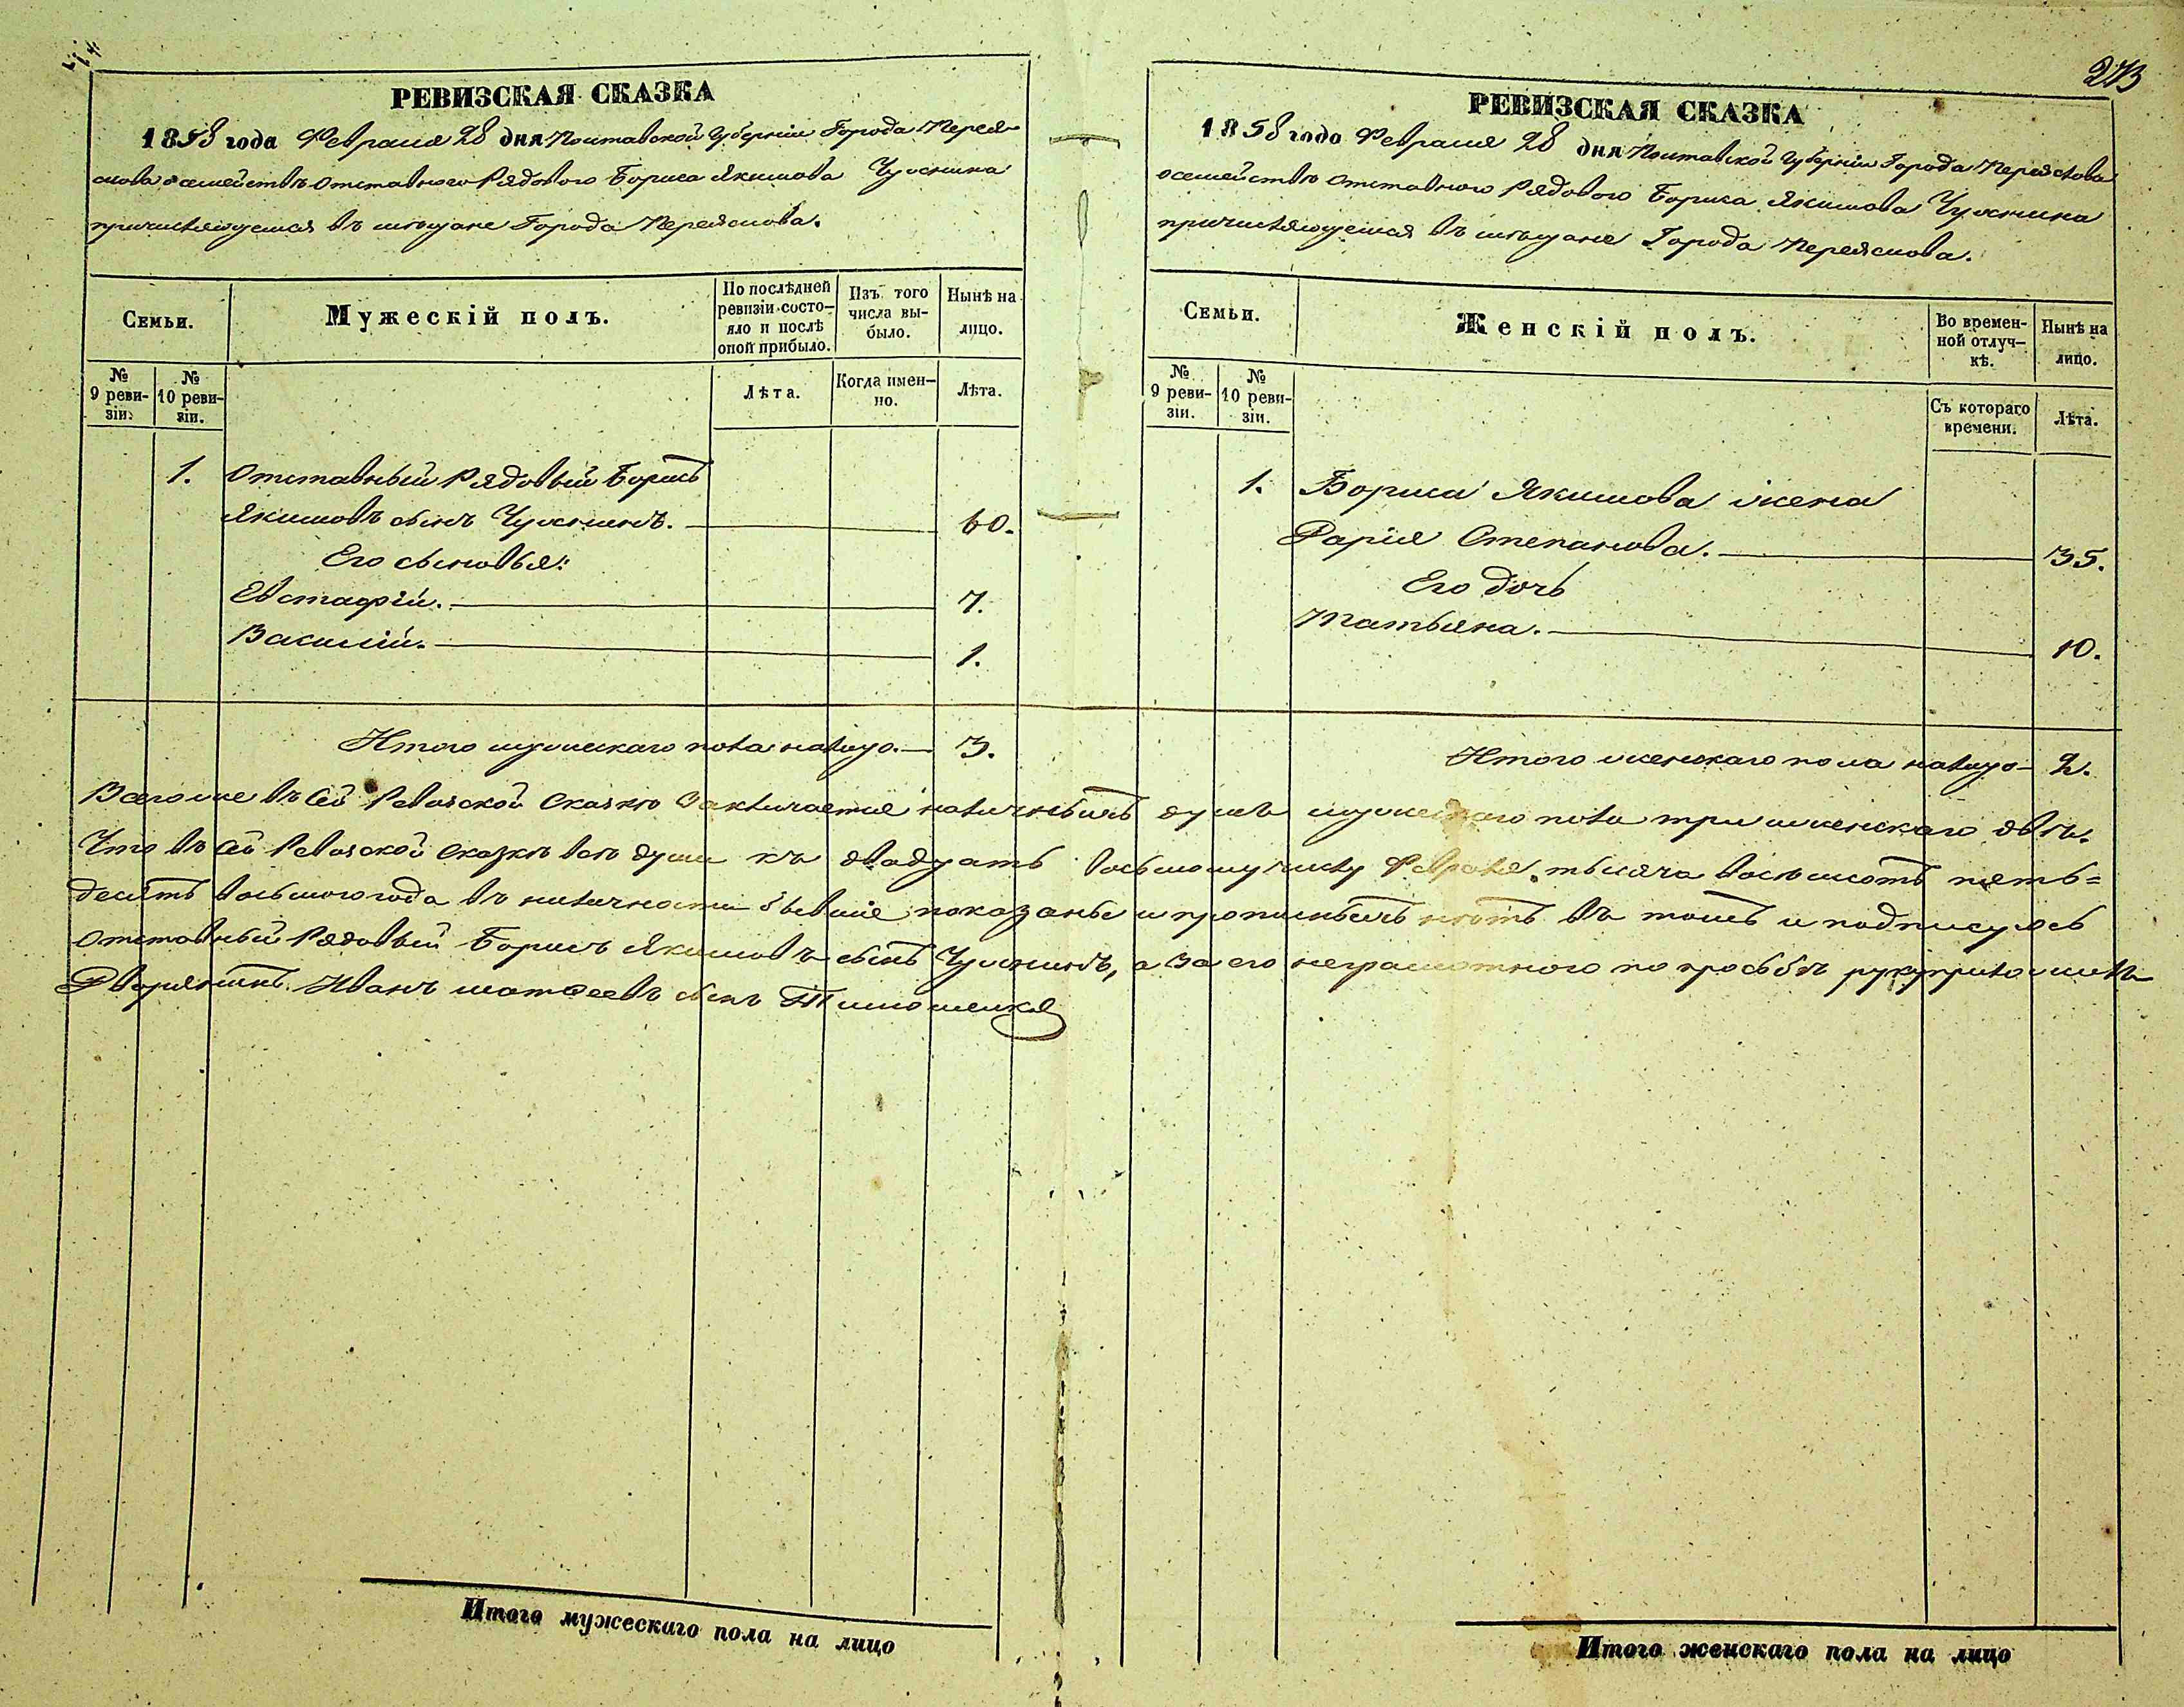 РЕВИЗСКАЯ СКАЗКА
1858 года Февраля 28 дня Полтавской Губерніи Города Перея-
слова о семействѣ отставнаго Рядоваго Бориса Якимова
причисляющемся въ мѣщане Города Переяслова.
Семьи.
Мужескій полъ.
По послѣдней ревизіи состояло и послѣ оной прибыло.
Изъ того числа выбыло.
Нынѣ на лицо.
№ 9 ревизіи.
№ 10 ревизіи.
Лѣта.
Когда именно.
Лѣта.
1. Отставный Рядовый Борисъ
Якимовъ сынъ 60.
Его сыновья:
Евстафій. 7.
Василій. 1.
Итого мужескаго пола налицо. 3.
273
РЕВИЗСКАЯ СКАЗКА
1858 года Февраля 28 дня Полтавской Губерніи Города Переяслова
о семействѣ отставного Рядового Бориса Якимова
причисляющемся въ мѣщане Города Переяслова.
Семьи.
Женскій полъ.
Во временной отлучкѣ.
Нынѣ на лицо.
№ 9 ревизіи.
№ 10 ревизіи.
Съ котораго времени.
Лѣта.
1. Бориса Якимова жена
Дарія Степанова. 35.
Его дочь
Татьяна. 10.
Итого женскаго пола налицо 2.
Всего же въ сей Ревизской Сказкѣ заключается наличныхъ душъ мужескаго пола три женскаго двѣ.
Что въ сей Ревизской сказкѣ всѣ души къ двадцать восьмому числу Февраля тысяча восемсотъ пять=
десятъ восьмого года въ наличности бывшіе показаны и прописныхъ нѣтъ въ томъ и подписуюсь
отставный Рядовый Борисъ Якимовъ сынъ а за его неграмотного по просьбѣ руку приложилъ
Дворянинъ Иванъ Матфеевъ сынъ Тимошенко
Итого мужескаго пола на лицо
Итого женскаго пола на лицо